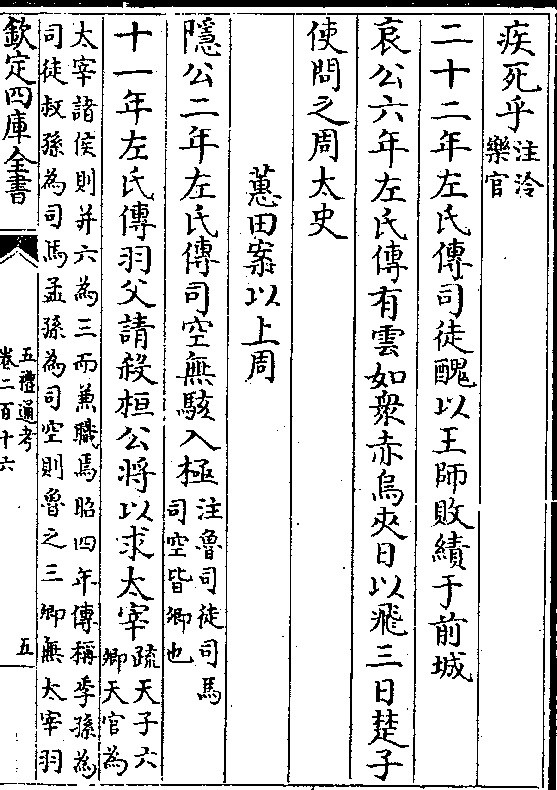 疾死乎注泠
樂官
二十二年左氏傳司徒醜以王師敗績于前城
哀公六年左氏傳有雲如衆赤烏夾日以飛三日楚子
使問之周太史
蕙田案以上周
隱公二年左氏傳司空無駭入極注魯司徒司馬
司空皆卿也
十一年左氏傳羽父請殺桓公將以求太宰疏天子六
卿天官為
太宰諸侯則并六為三而兼職焉昭四年傳稱季孫為
司徒叔孫為司馬孟孫為司空則魯之三卿無太宰羽
欽定四庫全書
五禮通考
卷二百十六
五